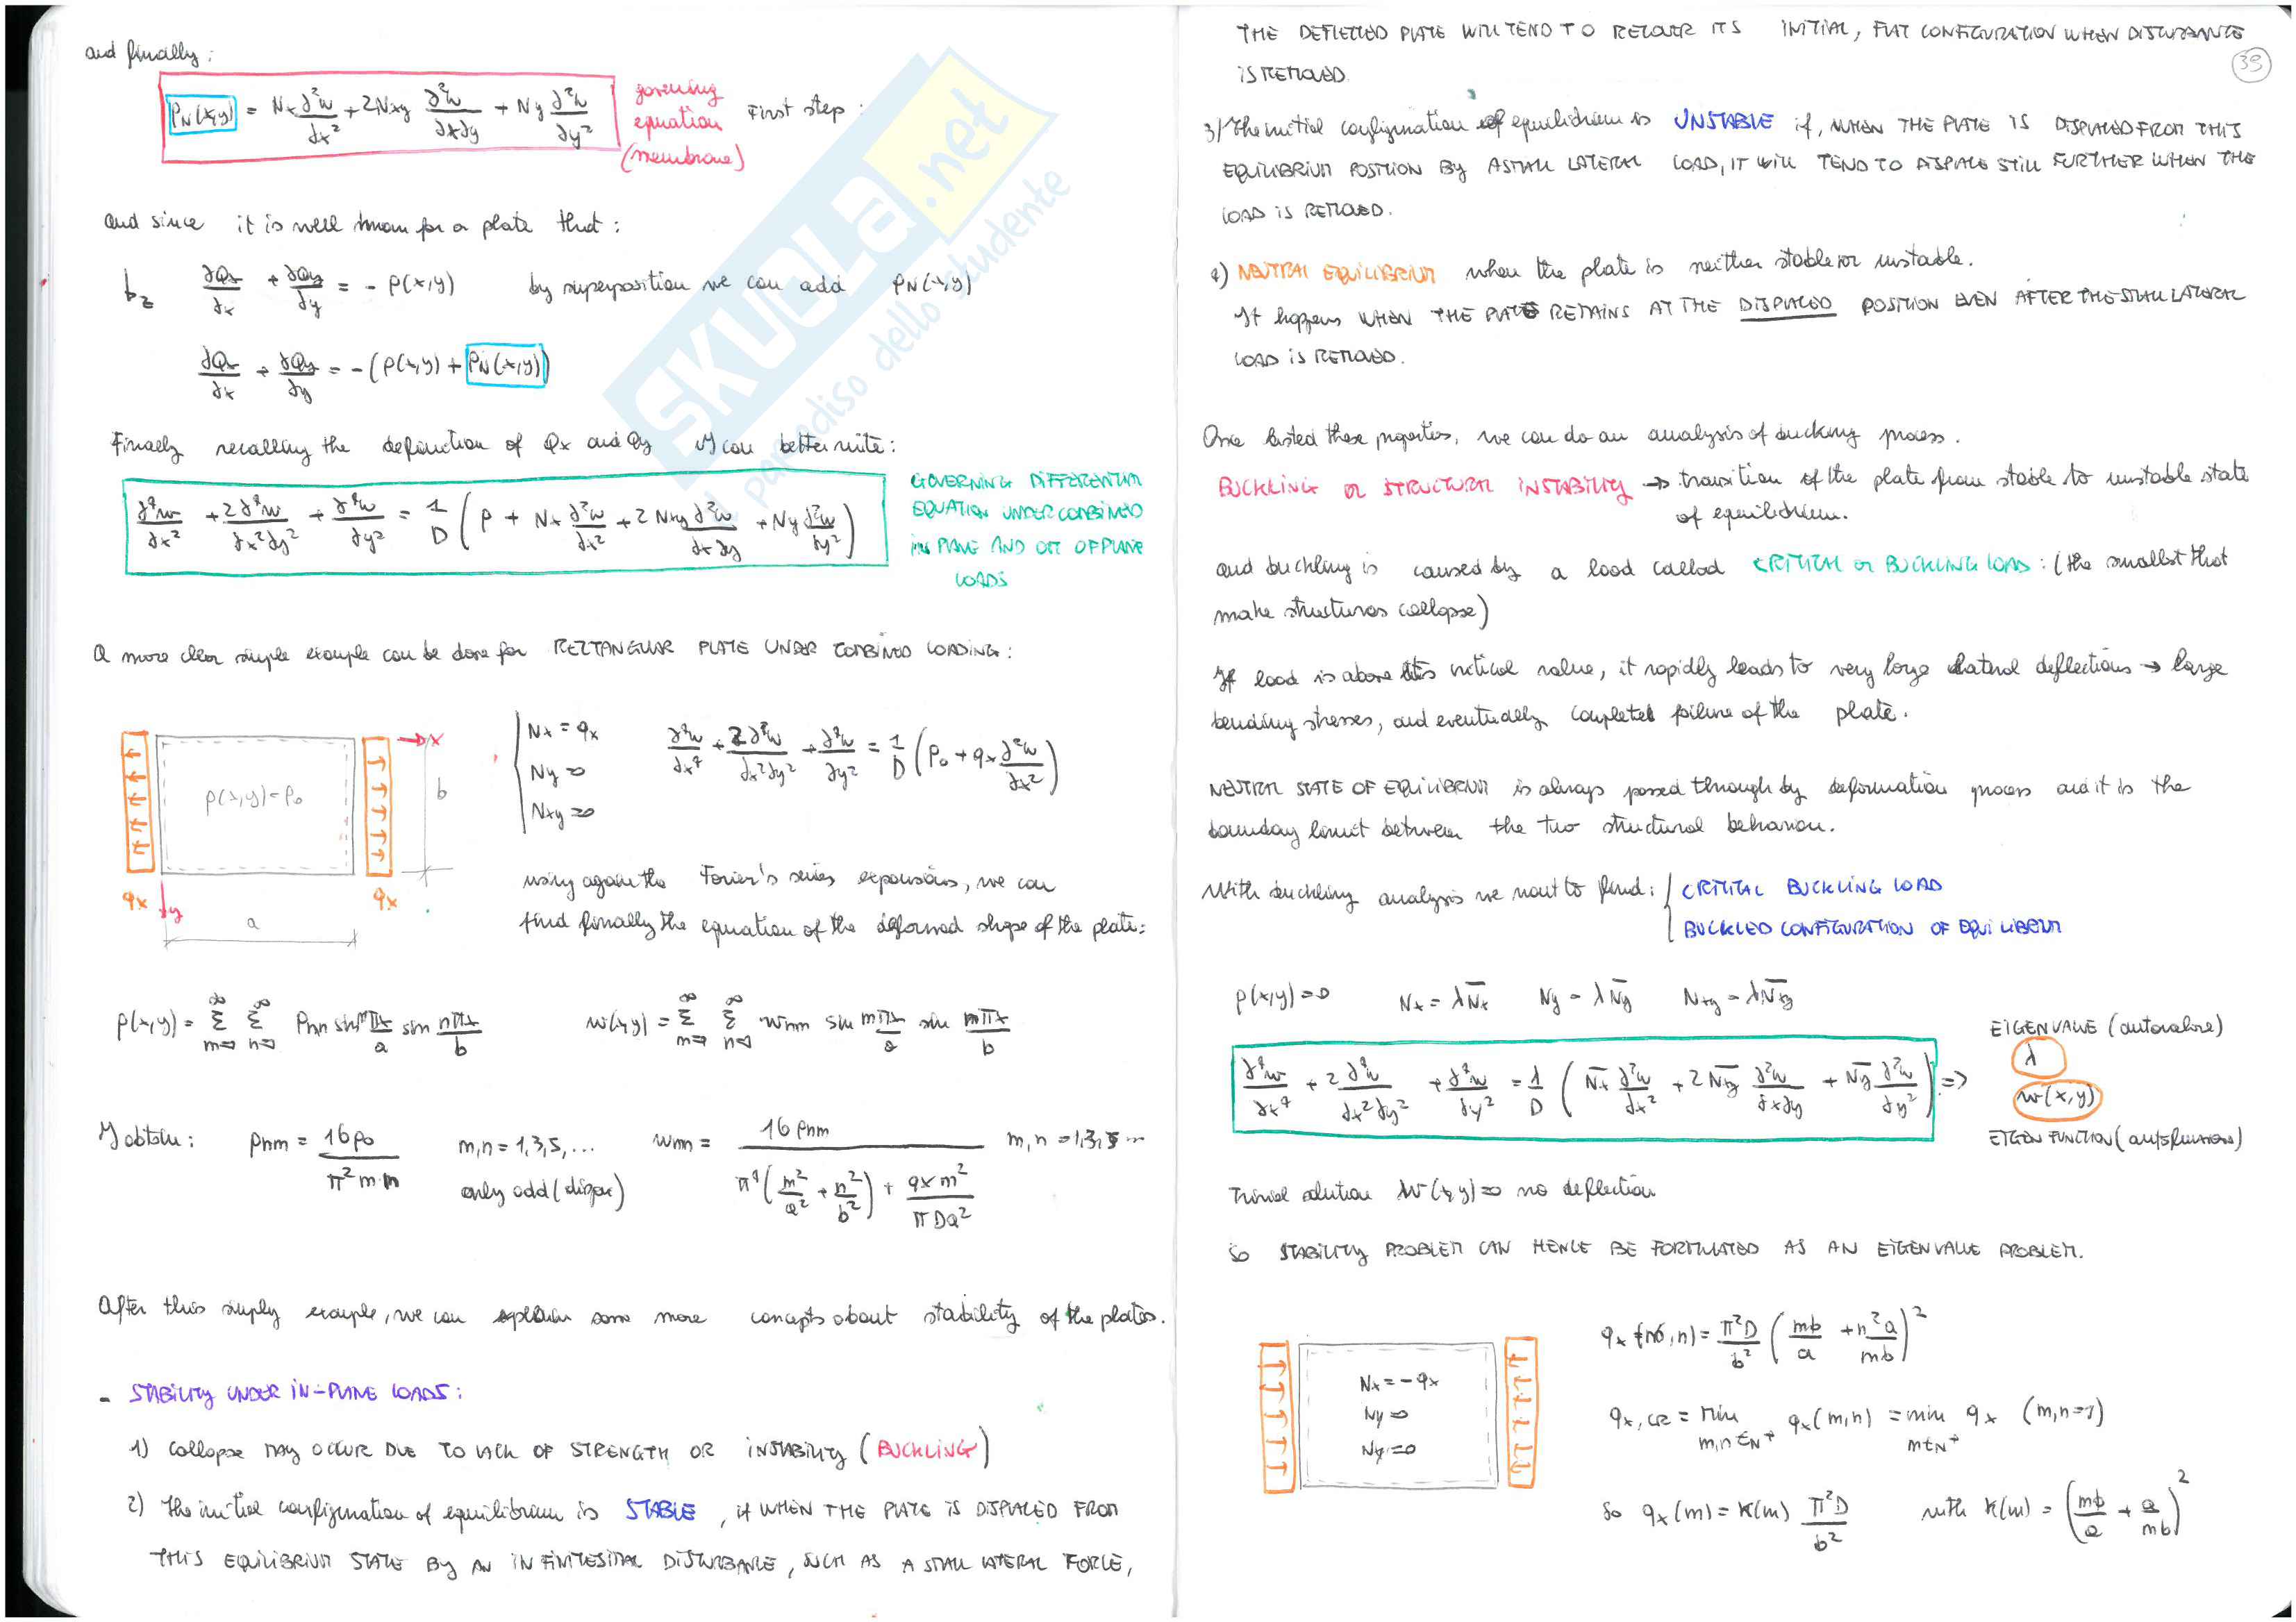 and finally:
P_N(x,y) = Nx ∂²w/∂x² + 2Nxy ∂²w/∂x∂y + Ny ∂²w/∂y²
governing equation (membrane)
First step:
and since it is well known for a plate that:
b_z ∂Qx/∂x + ∂Qy/∂y = - P(x,y) by superposition we can add P_N(x,y)
∂Qx/∂x + ∂Qy/∂y = -(P(x,y) + P_N(x,y))
Finally recalling the definition of Qx and Qy I can better write:
∂⁴w/∂x² + 2∂⁴w/∂x²∂y² + ∂⁴w/∂y² = 1/D (P + Nx ∂²w/∂x² + 2Nxy ∂²w/∂x∂y + Ny ∂²w/∂y²)
GOVERNING DIFFERENTIAL
EQUATION UNDER COMBINED
IN PLANE AND OUT OF PLANE
LOADS
A more clear simple example can be done for RECTANGULAR PLATE UNDER COMBINED LOADING:
P(x,y)=P₀
x
b
qx
y
qx
a
Nx = qx
Ny = 0
Nxy = 0
∂⁴w/∂x⁴ + 2∂⁴w/∂x²∂y² + ∂⁴w/∂y² = 1/D (P₀ + qx ∂²w/∂x²)
using again the Forier's series expansions, we can
find finally the equation of the deformed shape of the plate:
P(x,y) = Σ_{m=1}^∞ Σ_{n=1}^∞ Pmn sin mπx/a sin nπx/b
w(x,y) = Σ_{m=1}^∞ Σ_{n=1}^∞ wmn sin mπx/a sin mπx/b
I obtain: Pnm = 16P₀/π²m·n m,n = 1,3,5,... only odd (dispari)
wmn = 16 Pnm / (π⁴(m²/a² + n²/b²) + qx m²/πDa²) m,n = 1,3,5...
After this simply example, we can explain some more concepts about stability of the plates.
- STABILITY UNDER IN-PLANE LOADS:
1) Collapse MAY OCCUR DUE TO LACK OF STRENGTH OR INSTABILITY (BUCKLING)
2) The initial configuration of equilibrium is STABLE, if WHEN THE PLATE IS DISPLACED FROM
THIS EQUILIBRIUM STATE BY AN INFINITESIMAL DISTURBANCE, SUCH AS A SMALL LATERAL FORCE,
THE DEFLECTED PLATE WILL TEND TO RECOVER ITS INITIAL, FLAT CONFIGURATION WHEN DISTURBANCE
IS REMOVED.
39
3) The initial configuration of equilibrium is UNSTABLE if, WHEN THE PLATE IS DISPLACED FROM THIS
EQUILIBRIUM POSITION BY A SMALL LATERAL LOAD, IT WILL TEND TO DISPLACE STILL FURTHER WHEN THE
LOAD IS REMOVED.
4) NEUTRAL EQUILIBRIUM when the plate is neither stable or unstable.
It happens WHEN THE PLATE RETAINS AT THE DISPLACED POSITION EVEN AFTER THE SMALL LATERAL
LOAD IS REMOVED.
Once listed these properties, we can do an analysis of bucking process.
BUCKLING or STRUCTURAL INSTABILITY → transition of the plate from stable to unstable state
of equilibrium.
and buckling is caused by a load called CRITICAL or BUCKLING LOAD: (the smallest that
make structures collapse)
If load is above this critical value, it rapidly leads to very large lateral deflections → large
bending stresses, and eventually complete failure of the plate.
NEUTRAL STATE OF EQUILIBRIUM is always passed through by deformation process and it is the
boundary limit between the two structural behavior.
With buckling analysis we want to find: CRITICAL BUCKLING LOAD
BUCKLED CONFIGURATION OF EQUILIBRIUM
P(x,y)=0 Nx = λN̄x Ny = λN̄y Nxy = λN̄xy
∂⁴w/∂x⁴ + 2∂⁴w/∂x²∂y² + ∂⁴w/∂y² = λ/D (N̄x ∂²w/∂x² + 2N̄xy ∂²w/∂x∂y + N̄y ∂²w/∂y²) =>
EIGENVALUE (autovalore)
λ
w(x,y)
EIGEN FUNCTION (autofunzione)
Trivial solution w(x,y)=0 no deflection
So STABILITY PROBLEM CAN HENCE BE FORMULATED AS AN EIGENVALUE PROBLEM.
Nx = -qx
Ny = 0
Nxy = 0
qx (m,n) = π²D/b² (mb/a + n²a/mb)²
qx,CR = min_{m,n∈N⁺} qx(m,n) = min_{m∈N⁺} qx (m,n=1)
So qx(m) = K(m) π²D/b² with K(m) = (mb/a + a/mb)²
SKUOLA.net
il paradiso dello studente